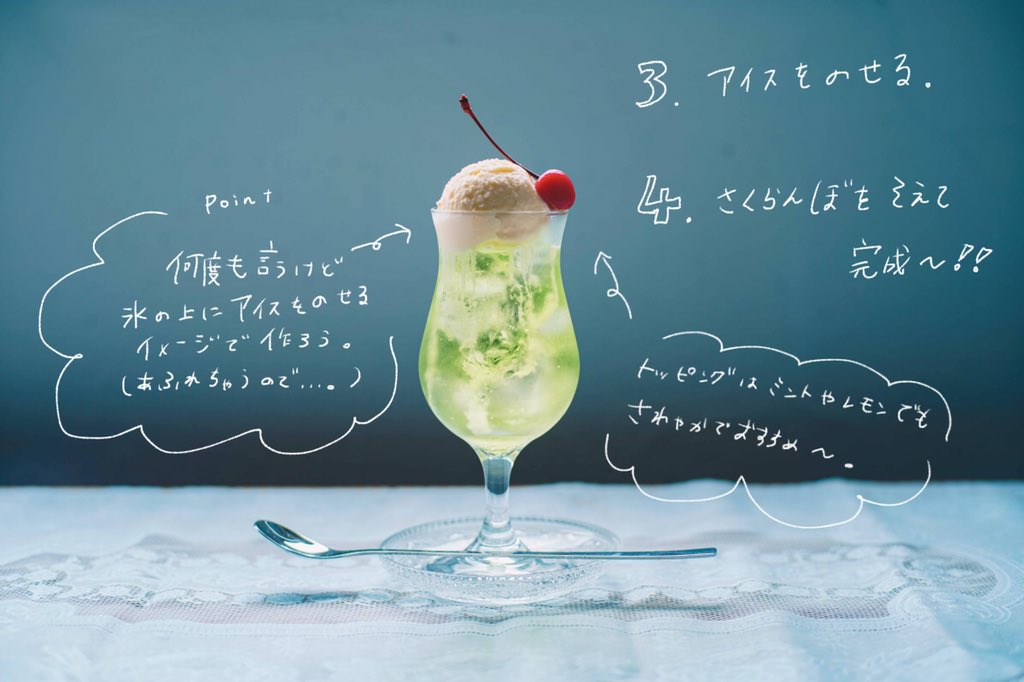 3. アイスをのせる.
4. さくらんぼをそえて
完成〜!!
point
何度も言うけど
氷の上にアイスをのせる
イメージで作ろう。
(あふれちゃうので...。)
トッピングはミントやレモンでも
さわやかでおすすめ〜。